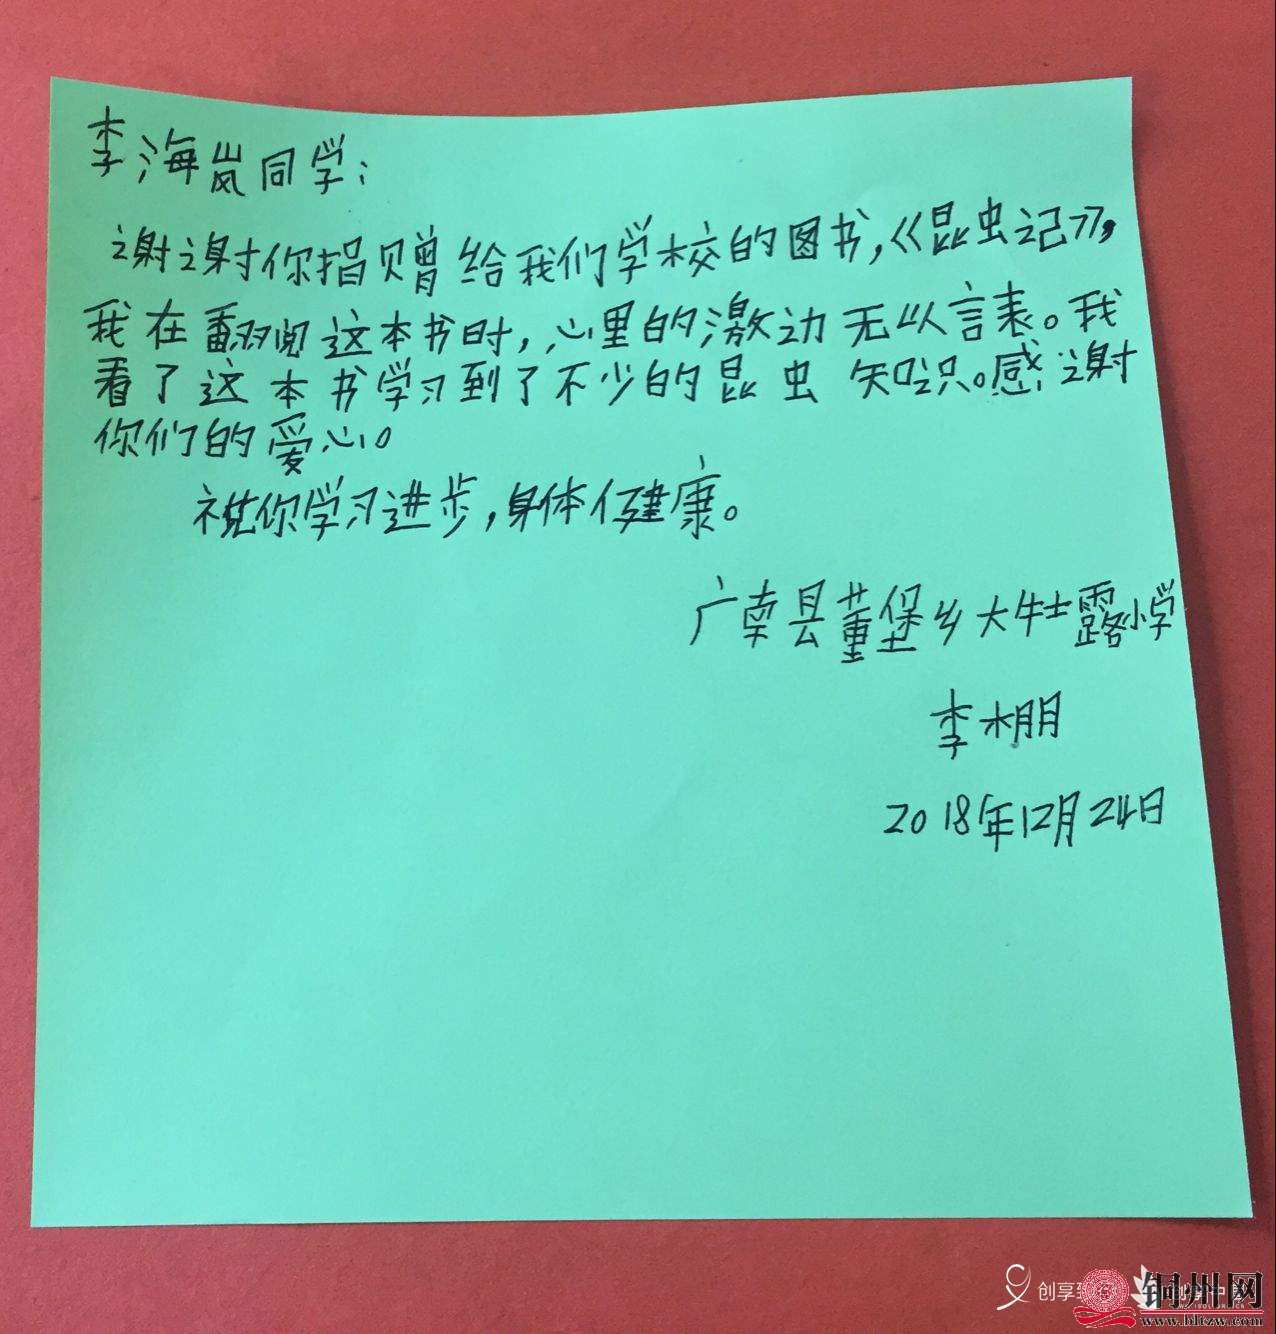 李海岚同学：
谢谢你捐赠给我们学校的图书，《昆虫记》，
我在翻阅这本书时，心里的激动无以言表。我
看了这本书学习到了不少的昆虫知识。感谢
你们的爱心。
祝你学习进步，身体健康。
广南县董堡乡大牡露小学
李棚
2018年12月24日
创享
铜州网
www.hltzw.com